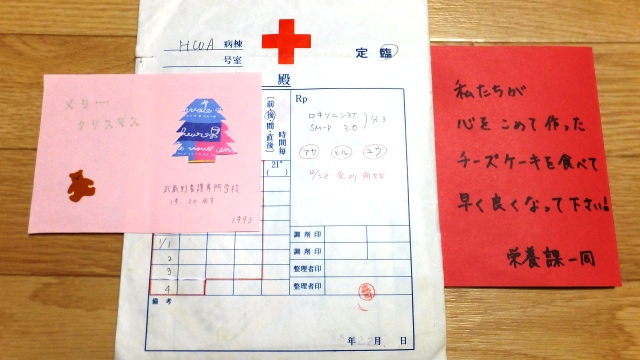 メリー
クリスマス
武蔵野看護専門学校
19. 20 回生
1993
HCUA 病棟
号室
定 臨
殿
前後間直後
時間毎
21°
( )
1/1
2
3
4
備 考
Rp
ロキソニン3T
SM-P 3.0
分3
アサ ヒル ユウ
調 剤 印
調 剤 印
整理者印
整理者印
年 月 日
私たちが
心をこめて作った
チーズケーキを食べて
早く良くなって下さい!
栄養課一同